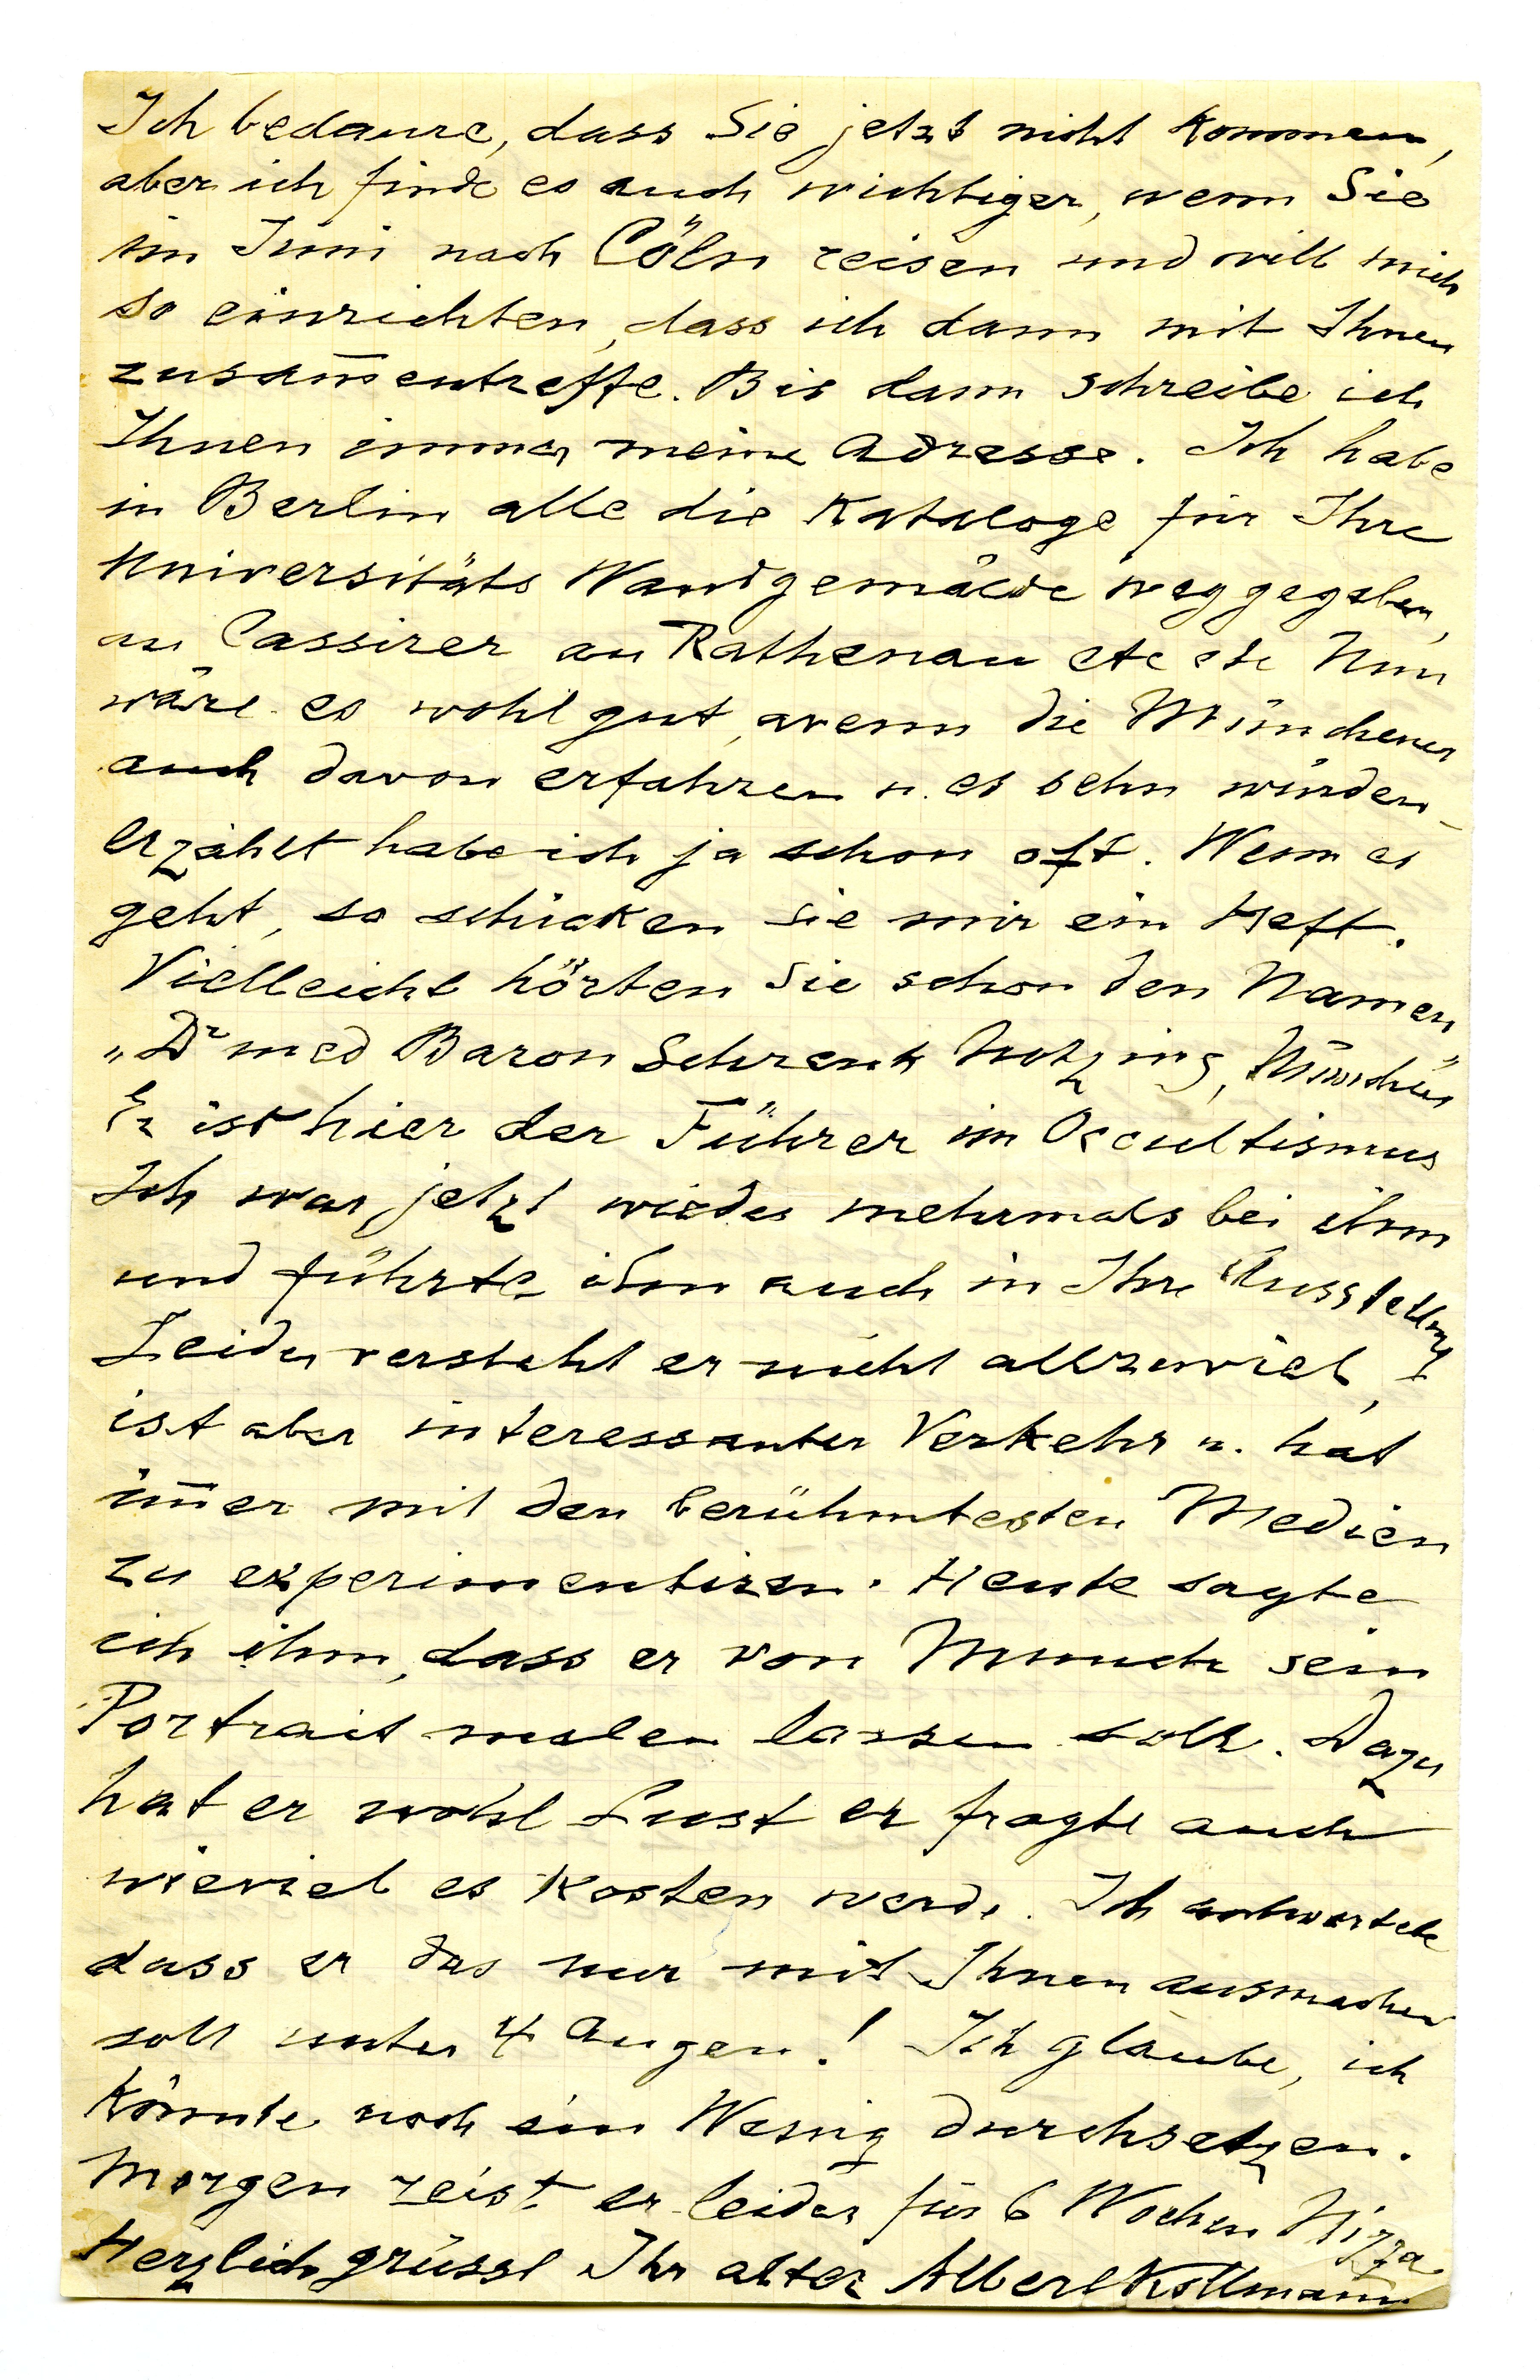 Ich bedaure, dass Sie jetzt nicht kommen,
aber ich finde es auch wichtiger, wenn Sie
im Juni nach Cöln reisen und will mich
so einrichten, dass ich dann mit Ihnen
zusam̅entreffe. Bis dann schreibe ich
Ihnen immer meine Adresse. Ich habe
in Berlin alle die Kataloge für Ihre
Universitäts Wandgemälde weggegeben,
an Cassirer an Rathenau etc etc Nun
wäre es wohl gut, wenn die Münchener
auch davon erfahren u. es sehn würden_
erzählt habe ich ja schon oft. Wenn es
geht, so schicken Sie mir ein Heft.
Vielleicht hörten Sie schon den Namen
„Dr med Baron Schrenk Notzing, München"
Er ist hier der Führer im Occultismus
Ich war jetzt wieder mehrmals bei ihm
und führte ihn auch in Ihre Ausstellung
Leider versteht er nicht allzuviel,
ist aber interessanter Verkehr u. hat
im̅er mit den berühmtesten Medien
zu experimentiren. Heute sagte
ich ihm, dass er von Munch sein
Portrait malen lassen soll. Dazu
hat er wohl Lust er fragte auch
wieviel es kosten werde. Ich antwortete
dass er das nur mit Ihnen ausmachen
soll unter 4 Augen! Ich glaube, ich
könnte noch ein Wenig durchsetzen.
Morgen reist er leider für 6 Wochen Nizza
Herzlich grüsst Ihr alter Albert Kollmann